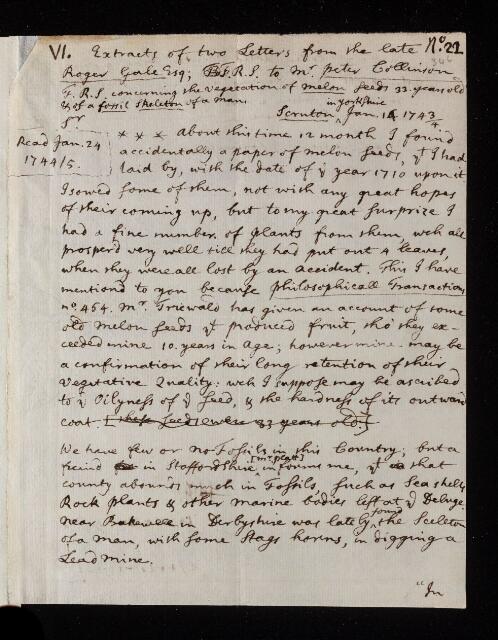 VI. Extracts of two Letters from the late No. 21
Roger Gale Esq; F.R.S. to Mr. Peter Collinson
F.R.S. concerning the vegetation of melon seeds 33 years old
& of a fossil skeleton of a man.
in Yorkshire
Sr Scruton, Jan. 1743/4
Read Jan. 24
1744/5.
* * * About this time 12 month I found
accidentally a paper of melon seeds, yt I had
laid by, with the date of ye year 1710 upon it
I sowed some of them, not with any great hopes
of their coming up, but to my great surprize I
had a fine number of plants from them, wch all
prosper'd very well till they had put out 4 leaves,
when they were all lost by an accident. This I have
mentiond to you because Philosophicall Transactions
no. 464. Mr. Triewald has given an account of some
old Melon seeds yt produced fruit, tho' they ex-
ceeded mine 10 years in Age; however mine may be
a confirmation of their long retention of their
Vegetative Quality: wch I suppose may be ascribed
to ye Oilyness of ye seed, & the hardness of its outward
coat. [these seeds were 33 years old.]
We have few or no Fossils in this Country; but a
[Mr. Platt]
freind in Staffordshire, informs me, yt that
county abounds much in Fossils, such as Sea shells
Rock plants & other marine bodies left at ye Deluge.
found
near Bakewell in Derbyshire was lately the Sceleton
of a man, with some Stags horns, in digging a
Lead mine.
"In